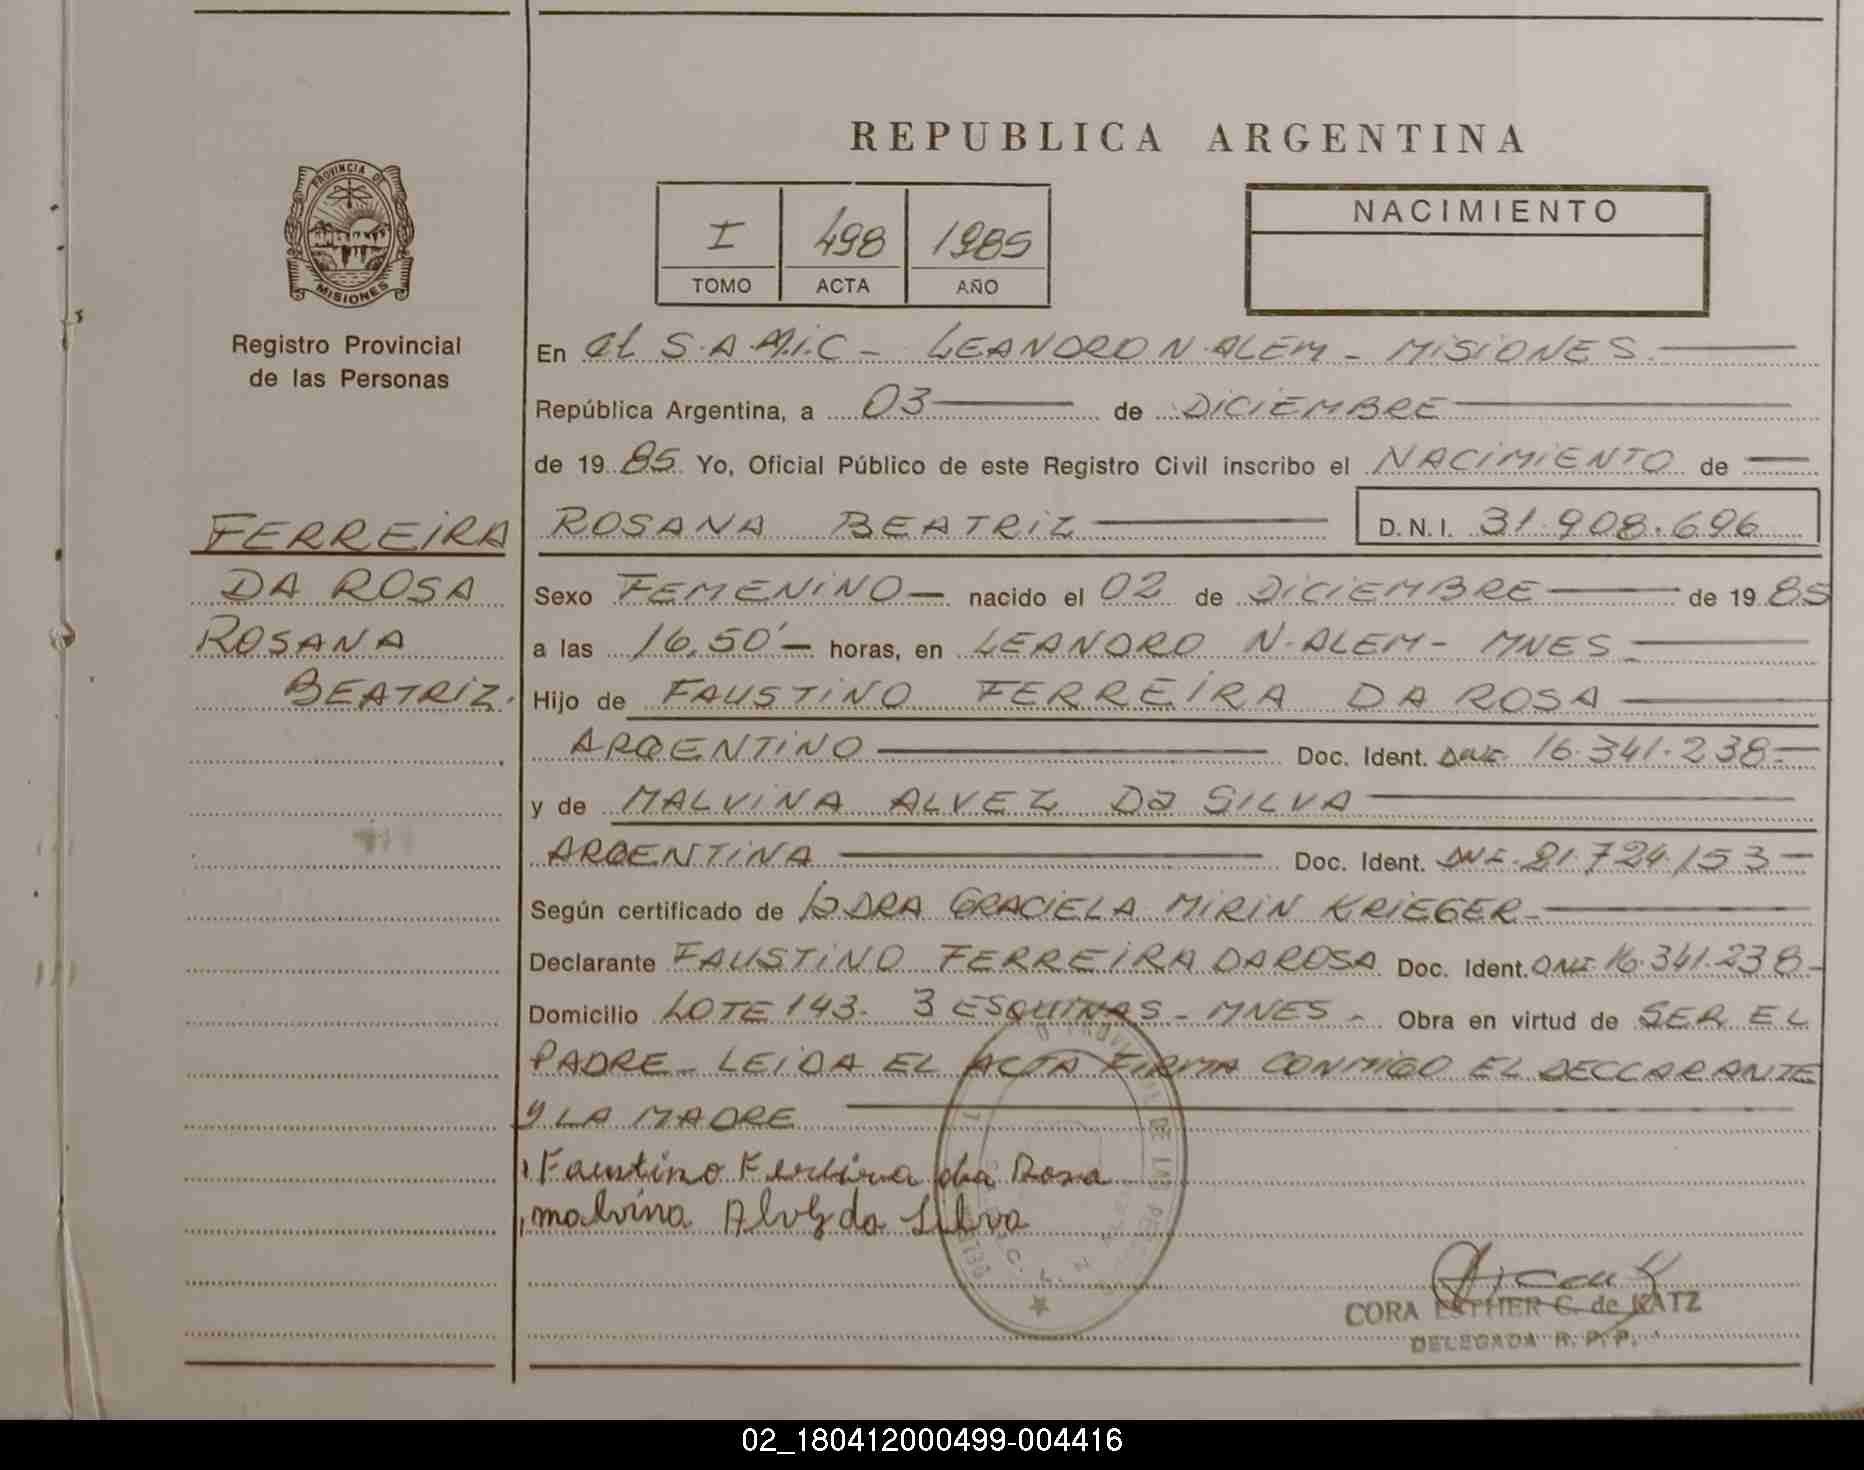 REPUBLICA ARGENTINA
PROVINCIA DE
MISIONES
Registro Provincial
de las Personas
I 498 1985
TOMO ACTA AÑO
NACIMIENTO
En el S.A.M.i.C - LEANDRO N. ALEM - MiSiONES
República Argentina, a 03 de DiCiEMBRE
de 19 85 Yo, Oficial Público de este Registro Civil inscribo el NACiMiENTO de
FERREiRA
DA ROSA
ROSANA
BEATRiZ.
ROSANA BEATRiZ D.N.I. 31.908.696
Sexo FEMENiNO nacido el 02 de DiCiEMBRE de 19 85
a las 16,50' horas, en LEANDRO N. ALEM - MNES
Hijo de FAUSTiNO FERREiRA DA ROSA
ARGENTiNO Doc. Ident. DNI 16.341.238
y de MALViNA ALVEZ Da SiLVA
ARGENTiNA Doc. Ident. DNI 21.724.153
Según certificado de la DRA GRACiELA MiRiN KRiEGER
Declarante FAUSTiNO FERREiRA DA ROSA Doc. Ident. DNI 16.341.238
Domicilio LOTE 143. 3 ESQUiNAS - MNES - Obra en virtud de SER EL
PADRE - LEiDA EL ACTA FiRMA CONMiGO EL DECLARANTE
y LA MADRE
Faustino Ferreira da Rosa
malvina Alvez da Silva
CORA ESTHER C. de KATZ
DELEGADA R. P. P.
02_180412000499-004416